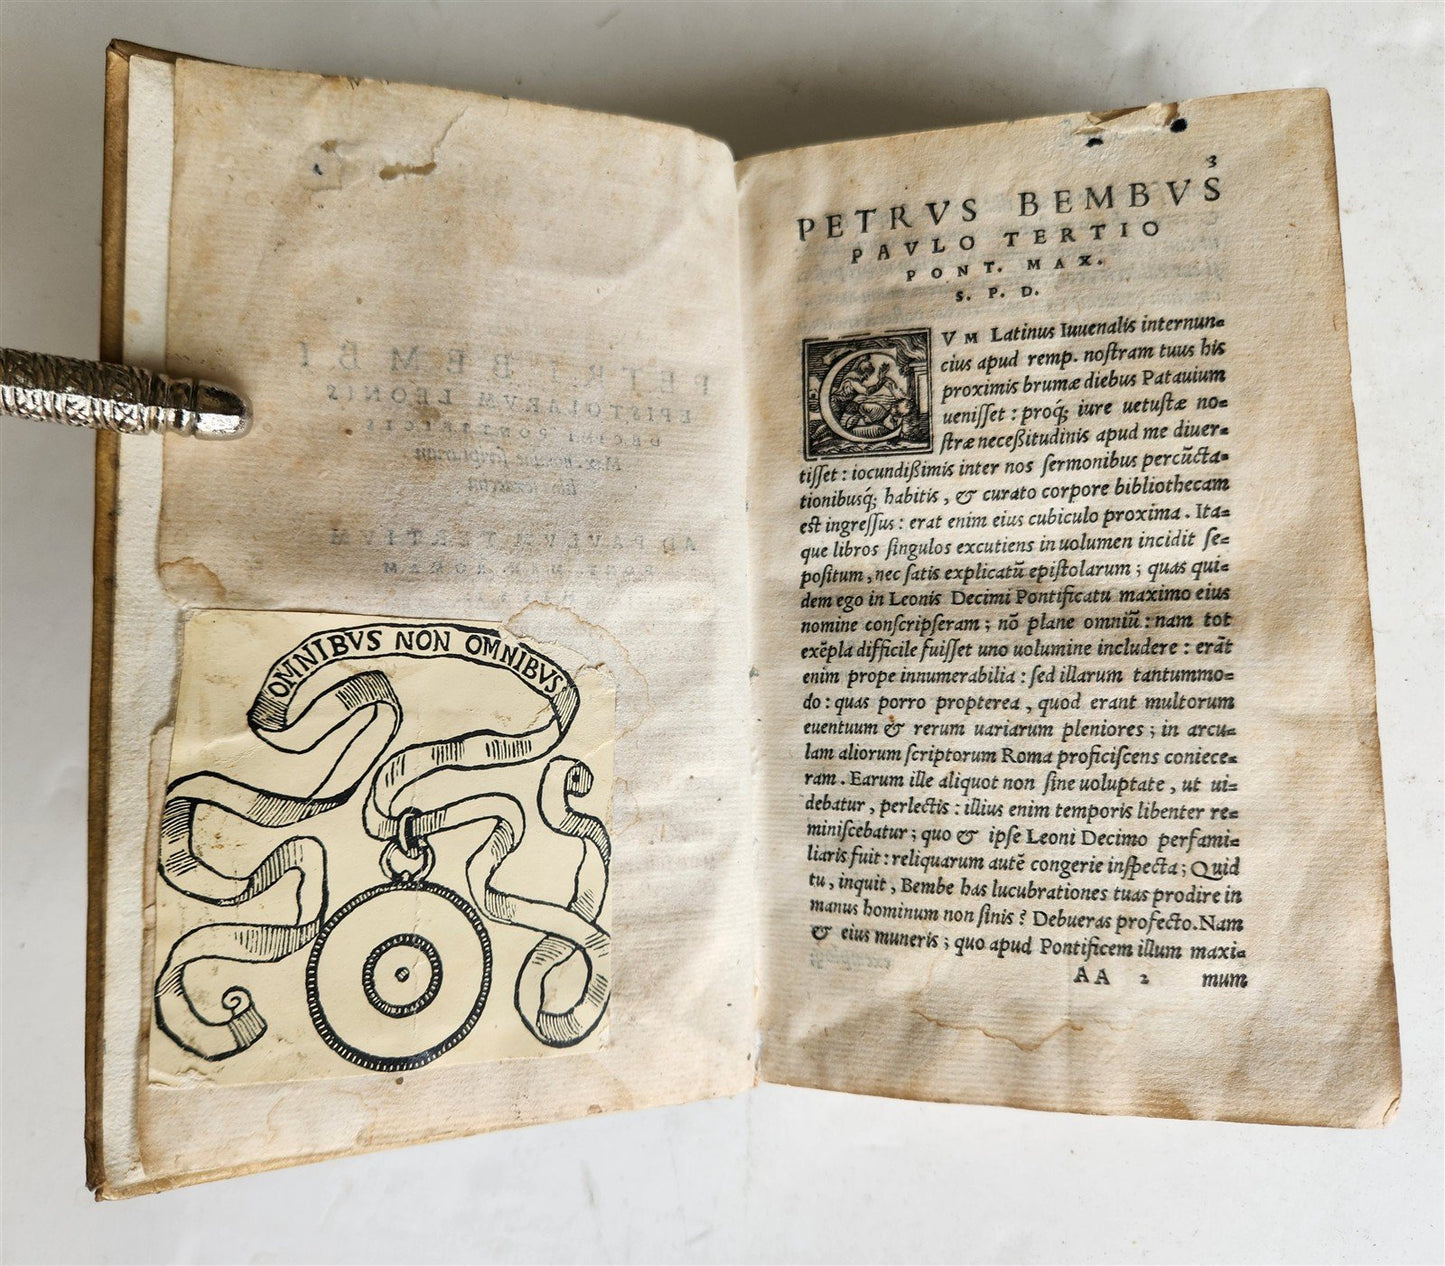 PETRI BEMBI
EPISTOLARVM LEONIS
DECIMI PONTIFICIS
Max. nomine scriptarum
AD PAVLVM TERTIVM
PONT. MAX. ROMAM
OMNIBVS NON OMNIBVS
3
PETRVS BEMBVS
PAVLO TERTIO
PONT. MAX.
S. P. D.
CVM Latinus Iuuenalis internun=
cius apud remp. nostram tuus his
proximis brumæ diebus Patauium
uenisset : proq́; iure uetustæ no=
stræ necessitudinis apud me diuer=
tisset : iocundissimis inter nos sermonibus percũcta=
tionibusq́; habitis, & curato corpore bibliothecam
est ingressus : erat enim eius cubiculo proxima. Ita=
que libros singulos excutiens in uolumen incidit se=
positum, nec satis explicatũ epistolarum ; quas qui=
dem ego in Leonis Decimi Pontificatu maximo eius
nomine conscripseram ; nõ plane omniũ : nam tot
exẽpla difficile fuisset uno uolumine includere : erãt
enim prope innumerabilia : sed illarum tantummo=
do : quas porro propterea, quod erant multorum
euentuum & rerum uariarum pleniores ; in arcu=
lam aliorum scriptorum Roma proficiscens coniece=
ram. Earum ille aliquot non sine uoluptate, ut ui=
debatur, perlectis : illius enim temporis libenter re=
miniscebatur ; quo & ipse Leoni Decimo perfami=
liaris fuit : reliquarum autẽ congerie inspecta ; Quid
tu, inquit, Bembe has lucubrationes tuas prodire in
manus hominum non sinis ? Debueras profecto. Nam
& eius muneris ; quo apud Pontificem illum maxi=
AA 2 mum